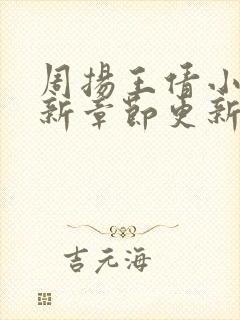 周揚王倩小
新章節更新
吉元海